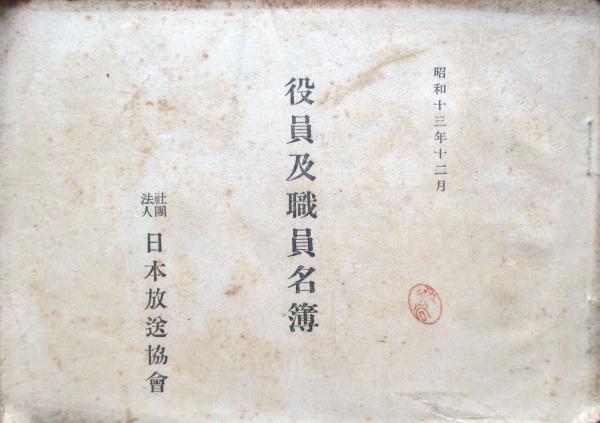 昭和十三年十二月
役員及職員名簿
社團法人 日本放送協會